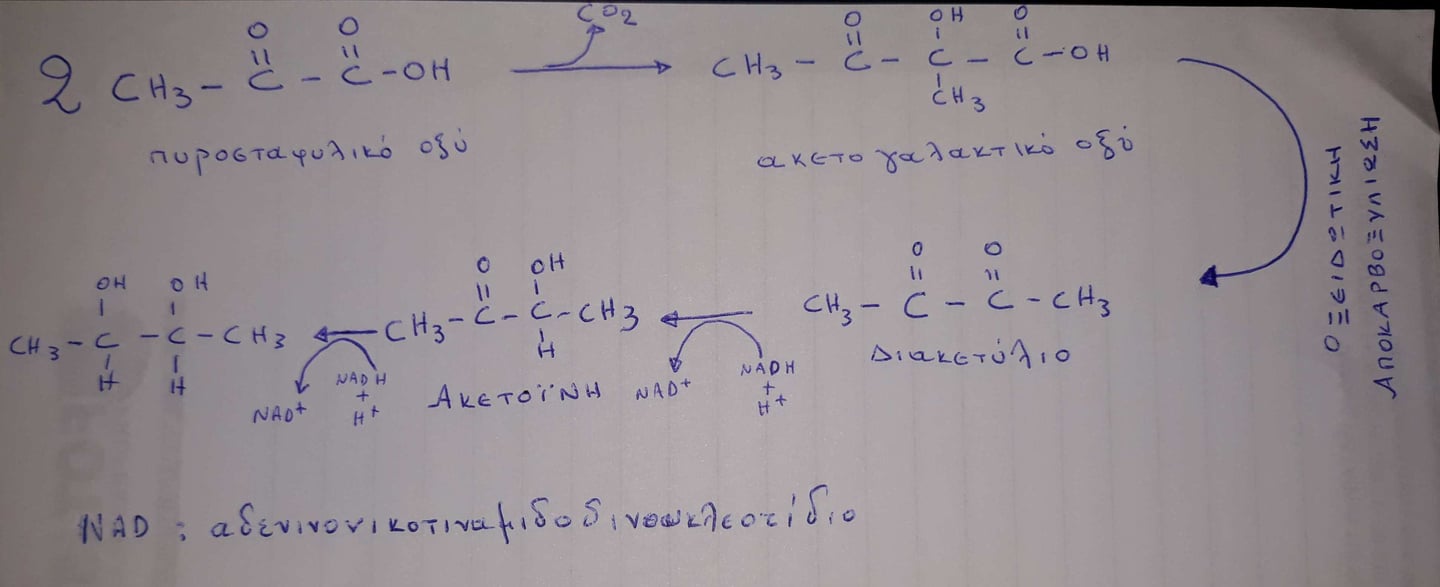 2 CH3 - C(=O) - C(=O) - OH → CO2 CH3 - C(=O) - C(OH)(CH3) - C(=O) - OH
πυροσταφυλικό οξύ
ακετογαλακτικό οξύ
ΟΞΕΙΔΩΤΙΚΗ
ΑΠΟΚΑΡΒΟΞΥΛΙΩΣΗ
CH3 - C(=O) - C(=O) - CH3
Διακετύλιο
NADH + H+
NAD+
CH3 - C(=O) - C(OH)(H) - CH3
Ακετοΐνη
NADH + H+
NAD+
CH3 - C(OH)(H) - C(OH)(H) - CH3
NAD : αδενινονικοτιναμιδοδινουκλεοτίδιο